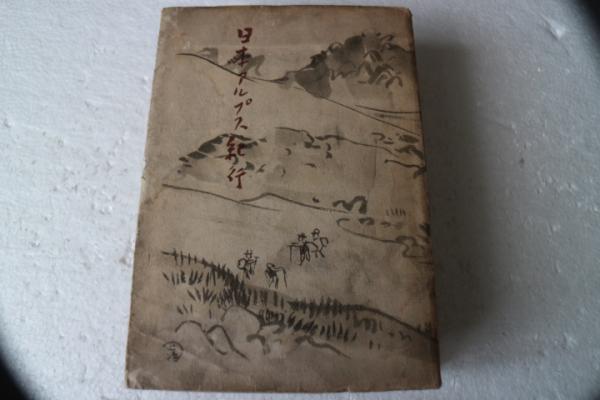 日本アルプス紀行